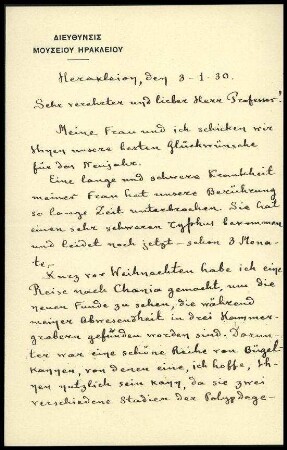 ΔΙΕΥΘΥΝΣΙΣ
ΜΟΥΣΕΙΟΥ ΗΡΑΚΛΕΙΟΥ
Herakleion, den 3-1-30.
Sehr verehrter und lieber Herr Professor!
Meine Frau und ich schicken wir
Ihnen unsere besten Glückwünsche
für das Neujahr.
Eine lange und schwere Krankheit
meiner Frau hat unsere Berührung
so lange Zeit unterbrochen. Sie hat
einen sehr schweren Typhus bekommen
und leidet noch jetzt - schon 3 Mona-
te.
Kurz vor Weihnachten habe ich eine
Reise nach Chania gemacht, um die
neuen Funde zu sehen, die während
meiner Abwesenheit in drei Kammer-
gräbern gefunden worden sind. Darun-
ter war eine schöne Reihe von Bügel-
kannen, von denen eine, ich hoffe, Ih-
nen nutzlich sein kann, da sie zwei
verschiedene Studien der Polypdege-